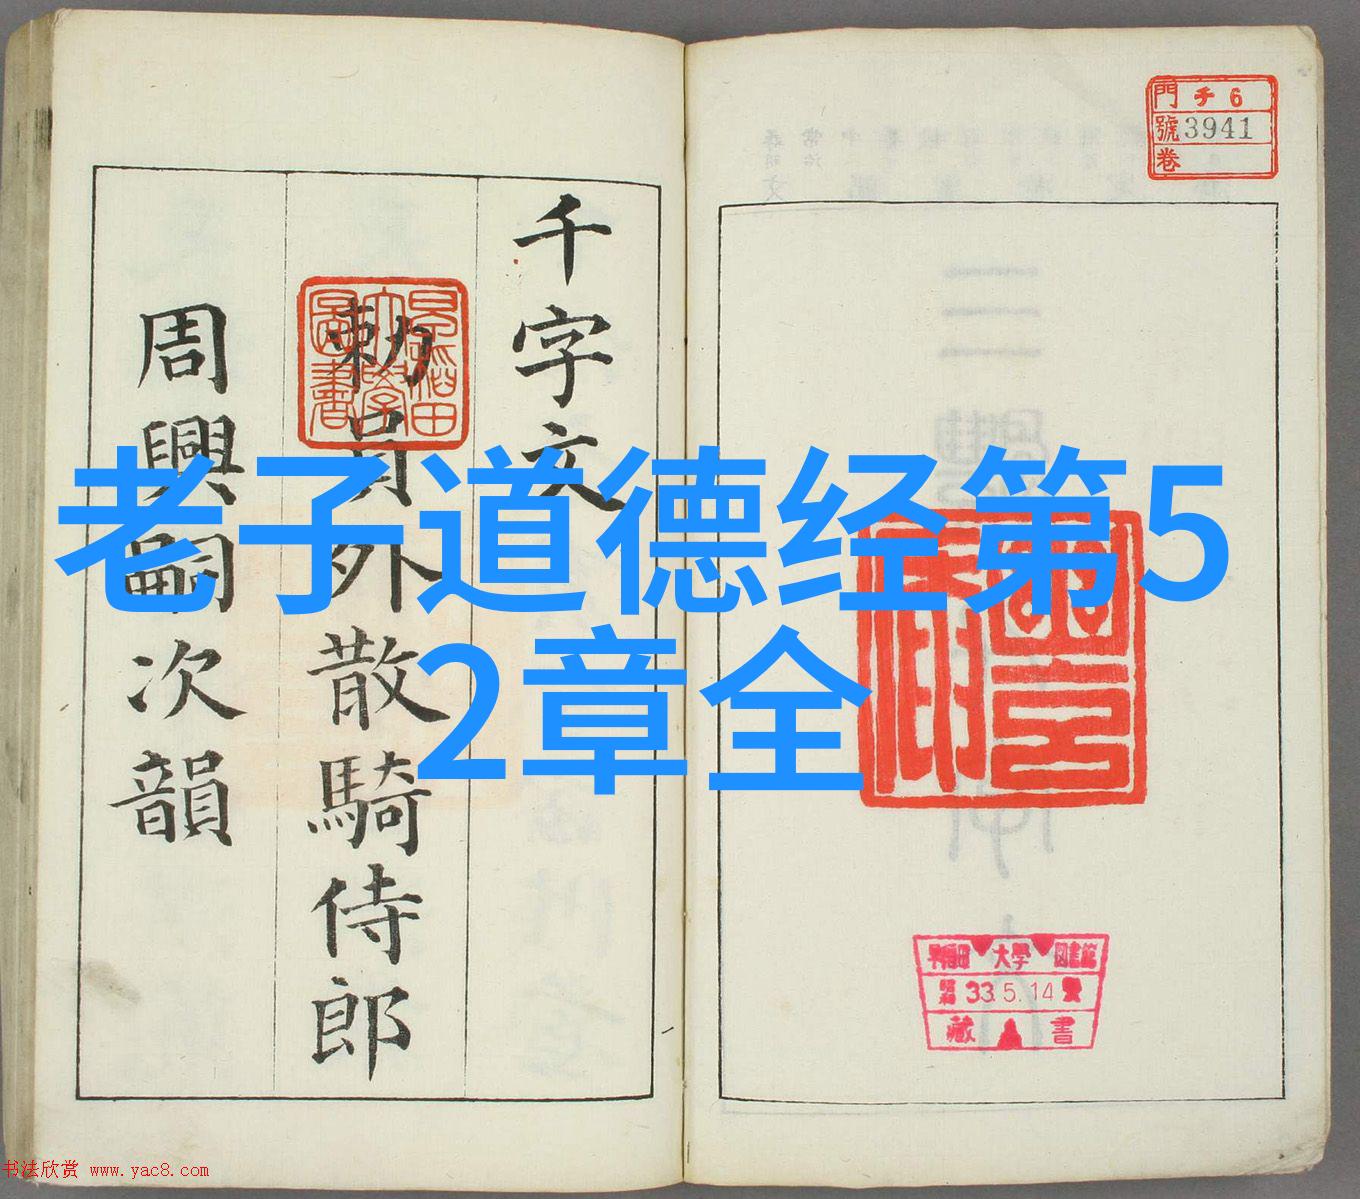 老子道德经第5
2章全
千字文
勅員外散騎侍郎
周興嗣次韻
早稲田大學圖書
門 チ6
號 3941
卷
早稲田大學圖書館
昭和 33.5.14
藏書
书法欣赏 www.yac8.com